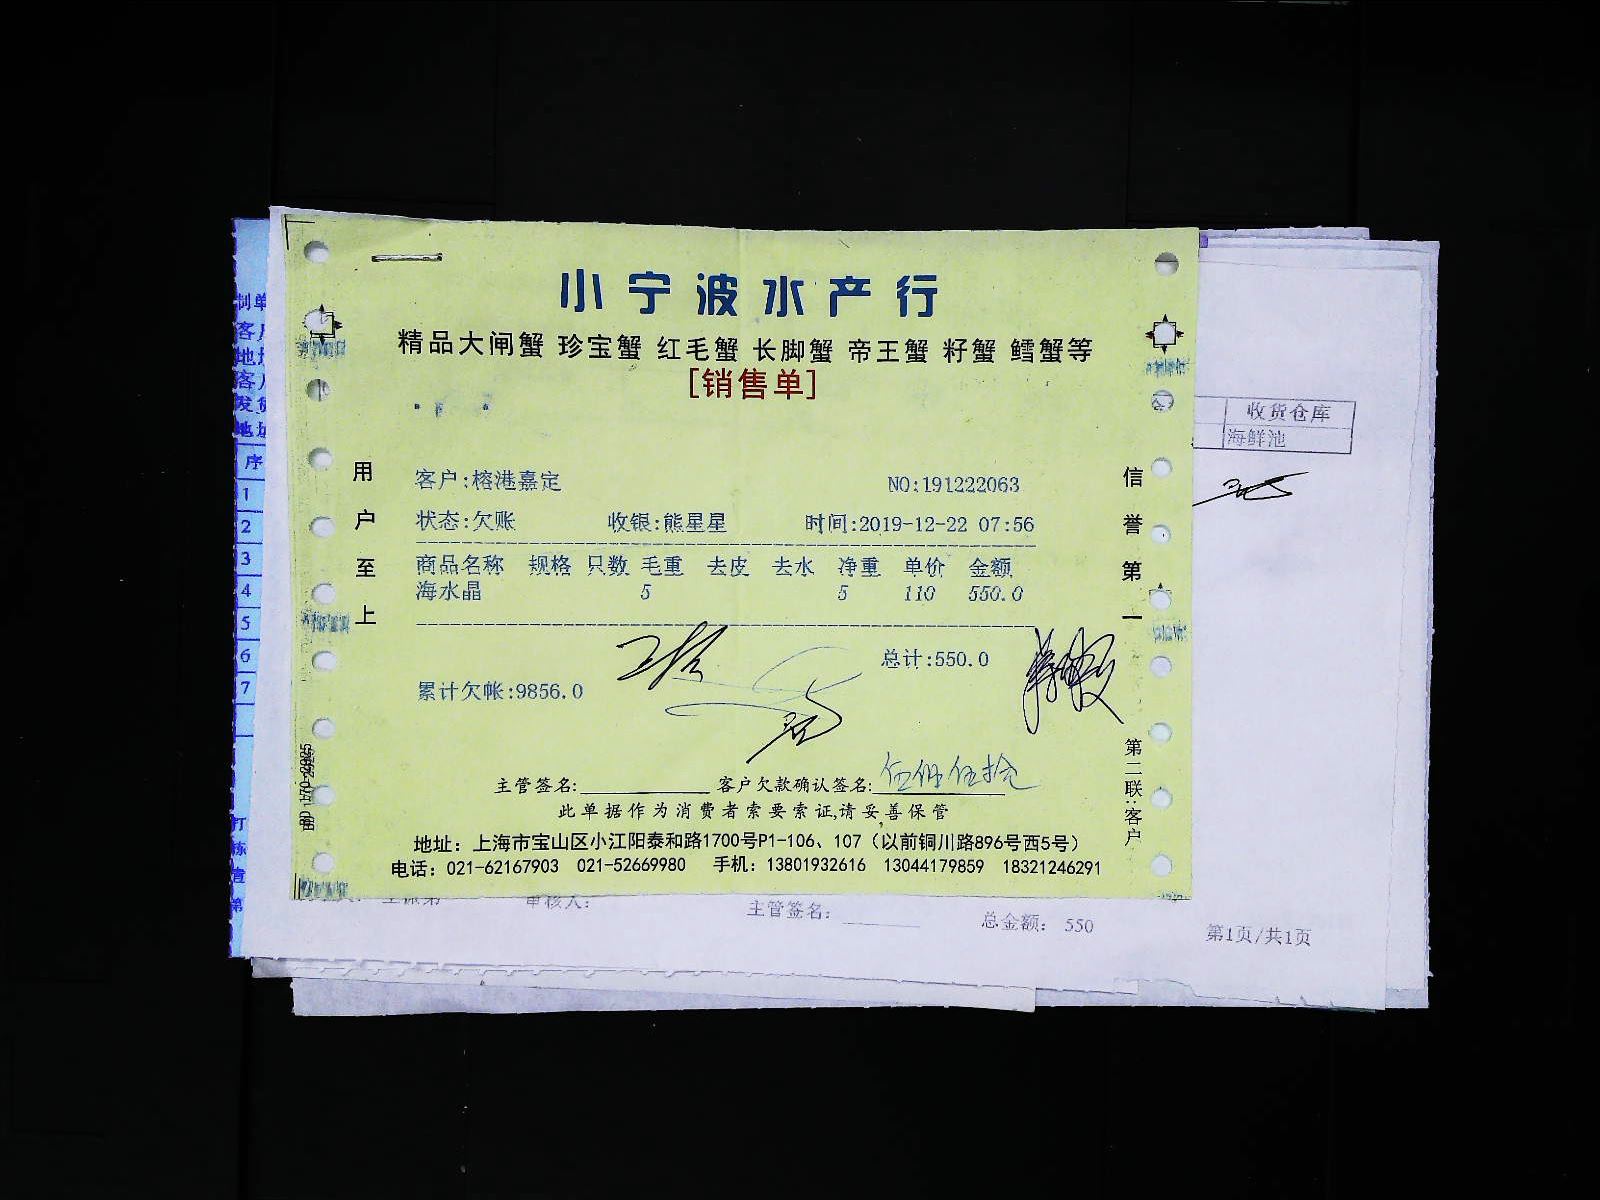 小宁波水产行
精品大闸蟹 珍宝蟹 红毛蟹 长脚蟹 帝王蟹 籽蟹 鳕蟹等
[销售单]
用户至上
信誉第一
客户:榕港嘉定 NO:191222063
状态:欠账 收银:熊星星 时间:2019-12-22 07:56
商品名称 规格 只数 毛重 去皮 去水 净重 单价 金额
海水晶 5 5 110 550.0
总计:550.0
累计欠帐:9856.0
主管签名: 客户欠款确认签名: 伍佰伍拾
此单据作为消费者索要索证,请妥善保管
地址：上海市宝山区小江阳泰和路1700号P1-106、107（以前铜川路896号西5号）
电话：021-62167903 021-52669980 手机：13801932616 13044179859 18321246291
第二联:客户
收货仓库
海鲜池
审核人:
主管签名:
总金额: 550
第1页/共1页
制单
客户
客户
发货
序
1
2
3
4
5
6
7
打
第